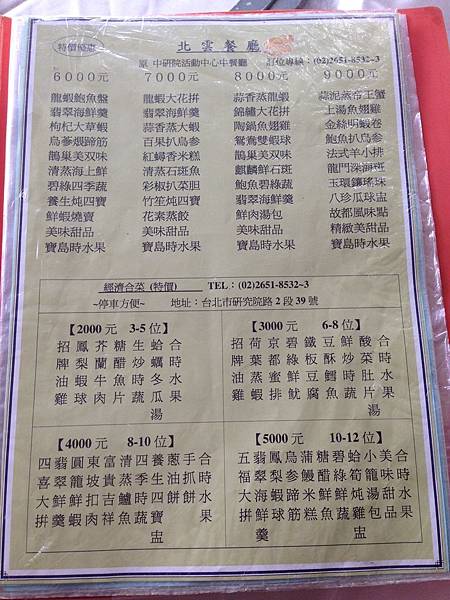 特價優惠
北雲餐廳
原 中研院活動中心中餐廳
訂位專線：(02)2651-8532~3
6000元
龍蝦鮑魚盤
翡翠海鮮羹
枸杞大草蝦
烏蔘煨蹄筋
鵲巢美双味
清蒸海上鮮
碧綠四季蔬
養生炖四寶
鮮蝦燒賣
美味甜品
寶島時水果
7000元
龍蝦大花拼
翡翠海鮮羹
蒜香蒸大蝦
百果扒烏參
紅蟳香米糕
清蒸石斑魚
彩椒扒菜胆
竹笙炖四寶
花素蒸餃
美味甜品
寶島時水果
8000元
蒜香蒸龍蝦
錦繡大花拼
陶鍋魚翅雞
鴛鴦雙蝦球
鵲巢美双味
麒麟鮮石斑
鮑魚碧綠蔬
翡翠海鮮羹
鮮肉湯包
美味甜品
寶島時水果
9000元
蒜泥蒸帝王蟹
上湯魚翅雞
金絲明蝦卷
鮑魚扒烏參
法式羊小排
龍門深海斑
玉環鑲瑤珠
八珍瓜球盅
故都風味點
精緻美甜品
寶島時水果
經濟合菜 (特價)
TEL：(02)2651-8532~3
~停車方便~
地址：台北市研究院路2段39號
【2000元 3-5位】
招牌油雞
鳳梨蝦球
芥蘭牛肉
糖醋魚片
生炒時蔬
蛤蠣冬瓜湯
合時水果
【3000元 6-8位】
招牌油雞
荷葉蒸蝦
京都蜜排
碧綠鮮魷
鐵板豆腐
豆酥鱈魚
鮮炒時蔬
酸菜肚片湯
合時水果
【4000元 8-10位】
四喜大拼
翡翠鮮羹
圓龍鮮蝦
東坡扣肉
富貴吉祥
清蒸鱸魚
四季時蔬
養生四寶盅
蔥油餅
手抓餅
合時水果
【5000元 10-12位】
五福大拼
翡翠海鮮羹
鳳梨蝦球
烏參蹄筋
蒲鰻米糕
糖醋鮮魚
碧綠鮮蔬
蛤筍炖雞盅
小籠湯包
美味甜品
合時水果